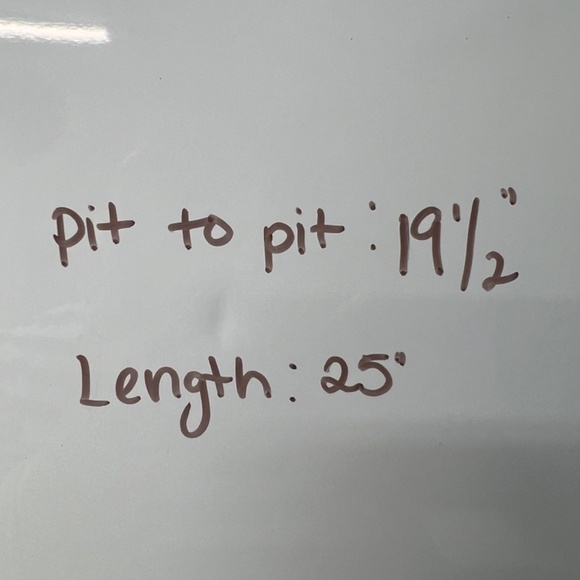 Pit to pit: 19 1/2"
Length: 25"